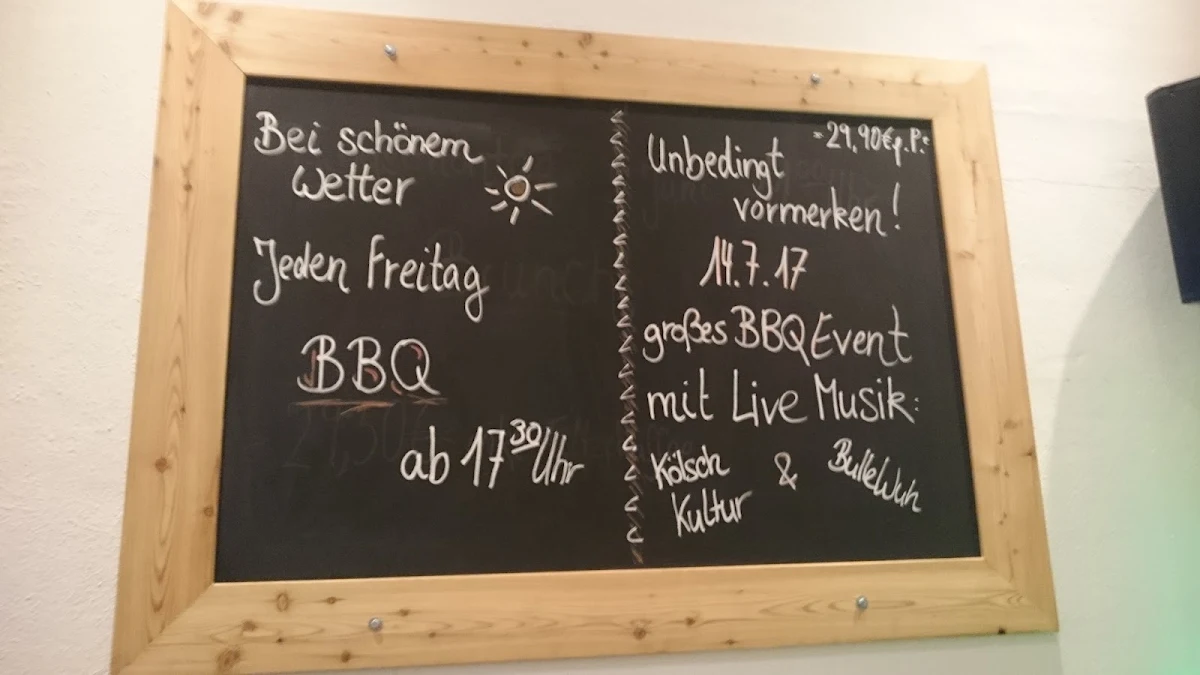 Bei schönem
Wetter
Jeden Freitag
BBQ
ab 17³⁰ Uhr
- 29,90€ p.P. -
Unbedingt
vormerken!
14.7.17
großes BBQ Event
mit Live Musik:
Kölsch & BulleWuh
Kultur